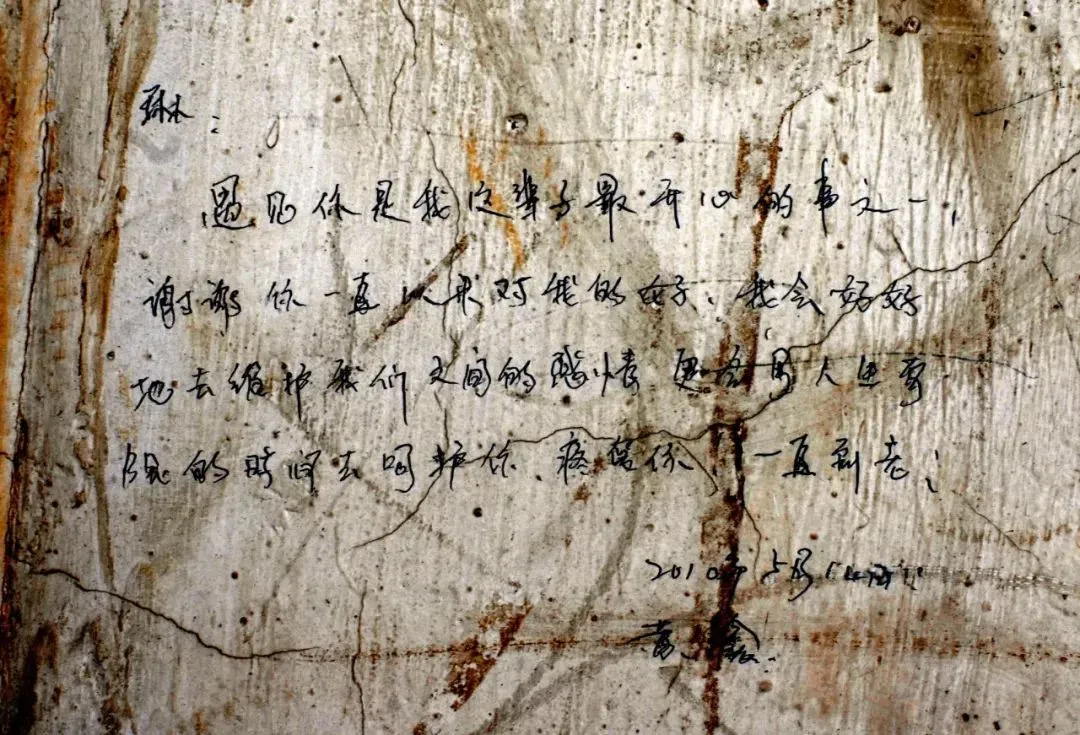 琳:
遇见你是我这辈子最开心的事之一,
谢谢你一直以来对我的好、我会好好
地去维护我们之间的感情 更会用人生有
限的时间去呵护你、疼惜你、一直到老;
2010年5月14日
黄鑫